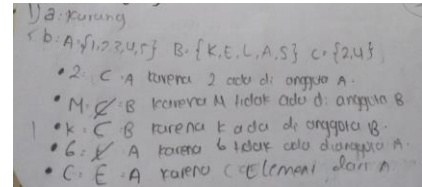 1) a: kurang
b: A: {1,2,3,4,5} B: {K,E,L,A,S} C: {2,4}
• 2: C · A karena 2 ada di anggota A.
• M: ⊄ · B karena M tidak ada di anggota B
• K: C · B karena k ada di anggota B.
• 6: ⊄ A karena 6 tidak ada dianggota A.
• C: E · A karena C Elemen dari A